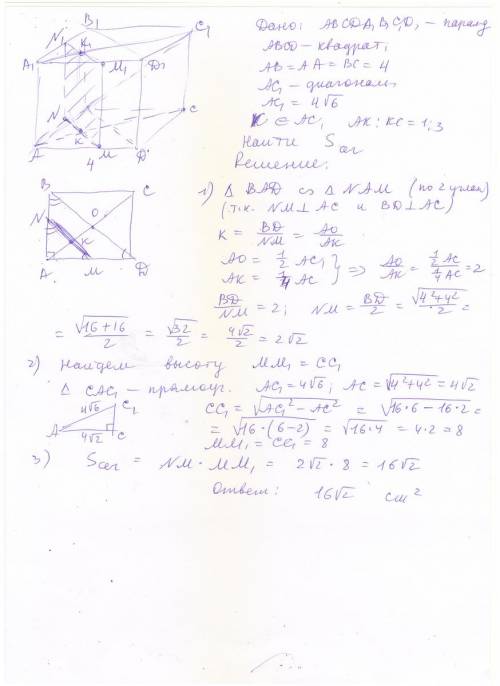 B₁
C₁
N₁
K₁
A₁
M₁
D₁
N
C
K
A
4
M
D
Дано: ABCDA₁B₁C₁D₁ – паралл
ABCD – квадрат,
AB = AA = BC = 4
AC₁ – диагональ
AC₁ = 4√6
K ∈ AC, AK : KC = 1:3
Найти Sсеч
Решение:
B
C
N
O
K
A
M
D
1) Δ BAD ∽ Δ NAM (по 2 углам)
(т.к. NM ⊥ AC и BD ⊥ AC)
K = BD/NM = AO/AK
AO = 1/2 AC
AK = 1/4 AC } ⇒ AO/AK = (1/2 AC)/(1/4 AC) = 2
BD/NM = 2; NM = BD/2 = √(4²+4²)/2 =
= √(16+16)/2 = √32/2 = 4√2/2 = 2√2
2) Найдем высоту MM₁ = CC₁
Δ CAC₁ – прямоуг. AC₁ = 4√6; AC = √(4²+4²) = 4√2
4√6
C₁
A
4√2
C
CC₁ = √(AC₁² – AC²) = √(16·6 – 16·2) =
= √(16·(6–2)) = √(16·4) = 4·2 = 8
MM₁ = CC₁ = 8
3) Sсеч = NM · MM₁ = 2√2 · 8 = 16√2
Ответ: 16√2 см²